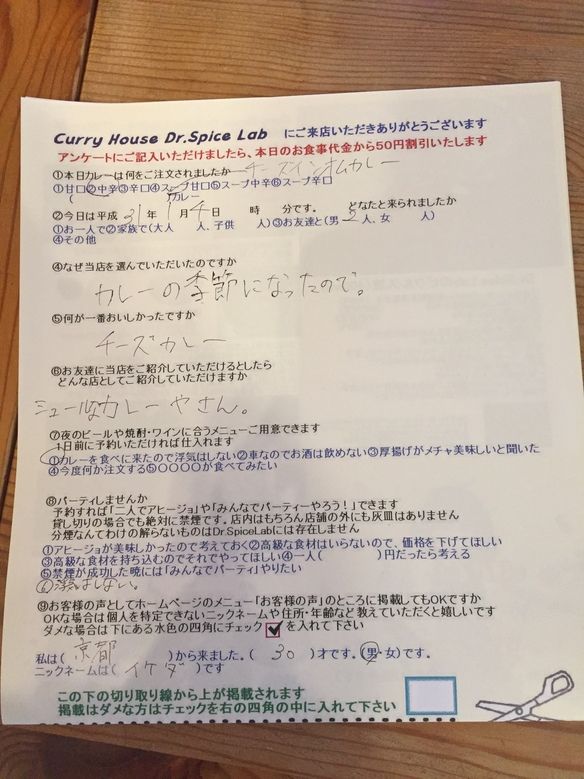 Curry House Dr.Spice Lab にご来店いただきありがとうございます
アンケートにご記入いただけましたら、本日のお食事代金から50円割引いたします
①本日カレーは何をご注文されましたか チーズインオムカレー
①甘口②中辛③辛口④スープ甘口⑤スープ中辛⑥スープ辛口
( )カレー
②今日は平成 31年 1月 4日 時 分です。 どなたと来られましたか
①お一人で②家族で(大人 人、子供 人)③お友達と(男 2人、女 人)
④その他
④なぜ当店を選んでいただいたのですか
カレーの季節になったので。
⑤何が一番おいしかったですか
チーズカレー
⑥お友達に当店をご紹介していただけるとしたら
どんな店としてご紹介していただけますか
シュールなカレーやさん。
⑦夜のビールや焼酎・ワインに合うメニューご用意できます
1日前に予約いただければ仕入れます
①カレーを食べに来たので浮気はしない②車なのでお酒は飲めない③厚揚げがメチャ美味しいと聞いた
④今度何か注文する⑤〇〇〇〇が食べてみたい
⑧パーティしませんか
予約すれば「二人でアヒージョ」や「みんなでパーティーやろう!」できます
貸し切りの場合でも絶対に禁煙です。店内はもちろん店舗の外にも灰皿はありません
分煙なんてわけの解らないものはDr.SpiceLabには存在しません
①アヒージョが美味しかったので考えておく②高級な食材はいらないので、価格を下げてほしい
③高級な食材を持ち込むのでそれでやってほしい④一人( )円だったら考える
⑤禁煙が成功した暁には「みんなでパーティ」やりたい
⑨お客様の声としてホームページのメニュー「お客様の声」のところに掲載してもOKですか
OKな場合は個人を特定できないニックネームや住所・年齢など教えていただくと嬉しいです
ダメな場合は下にある水色の四角にチェック を入れて下さい
私は( 京都 )から来ました。( 30 )才です。(男・女)です。
ニックネームは( イケダ )です
この下の切り取り線から上が掲載されます
掲載はダメな方はチェックを右の四角の中に入れて下さい